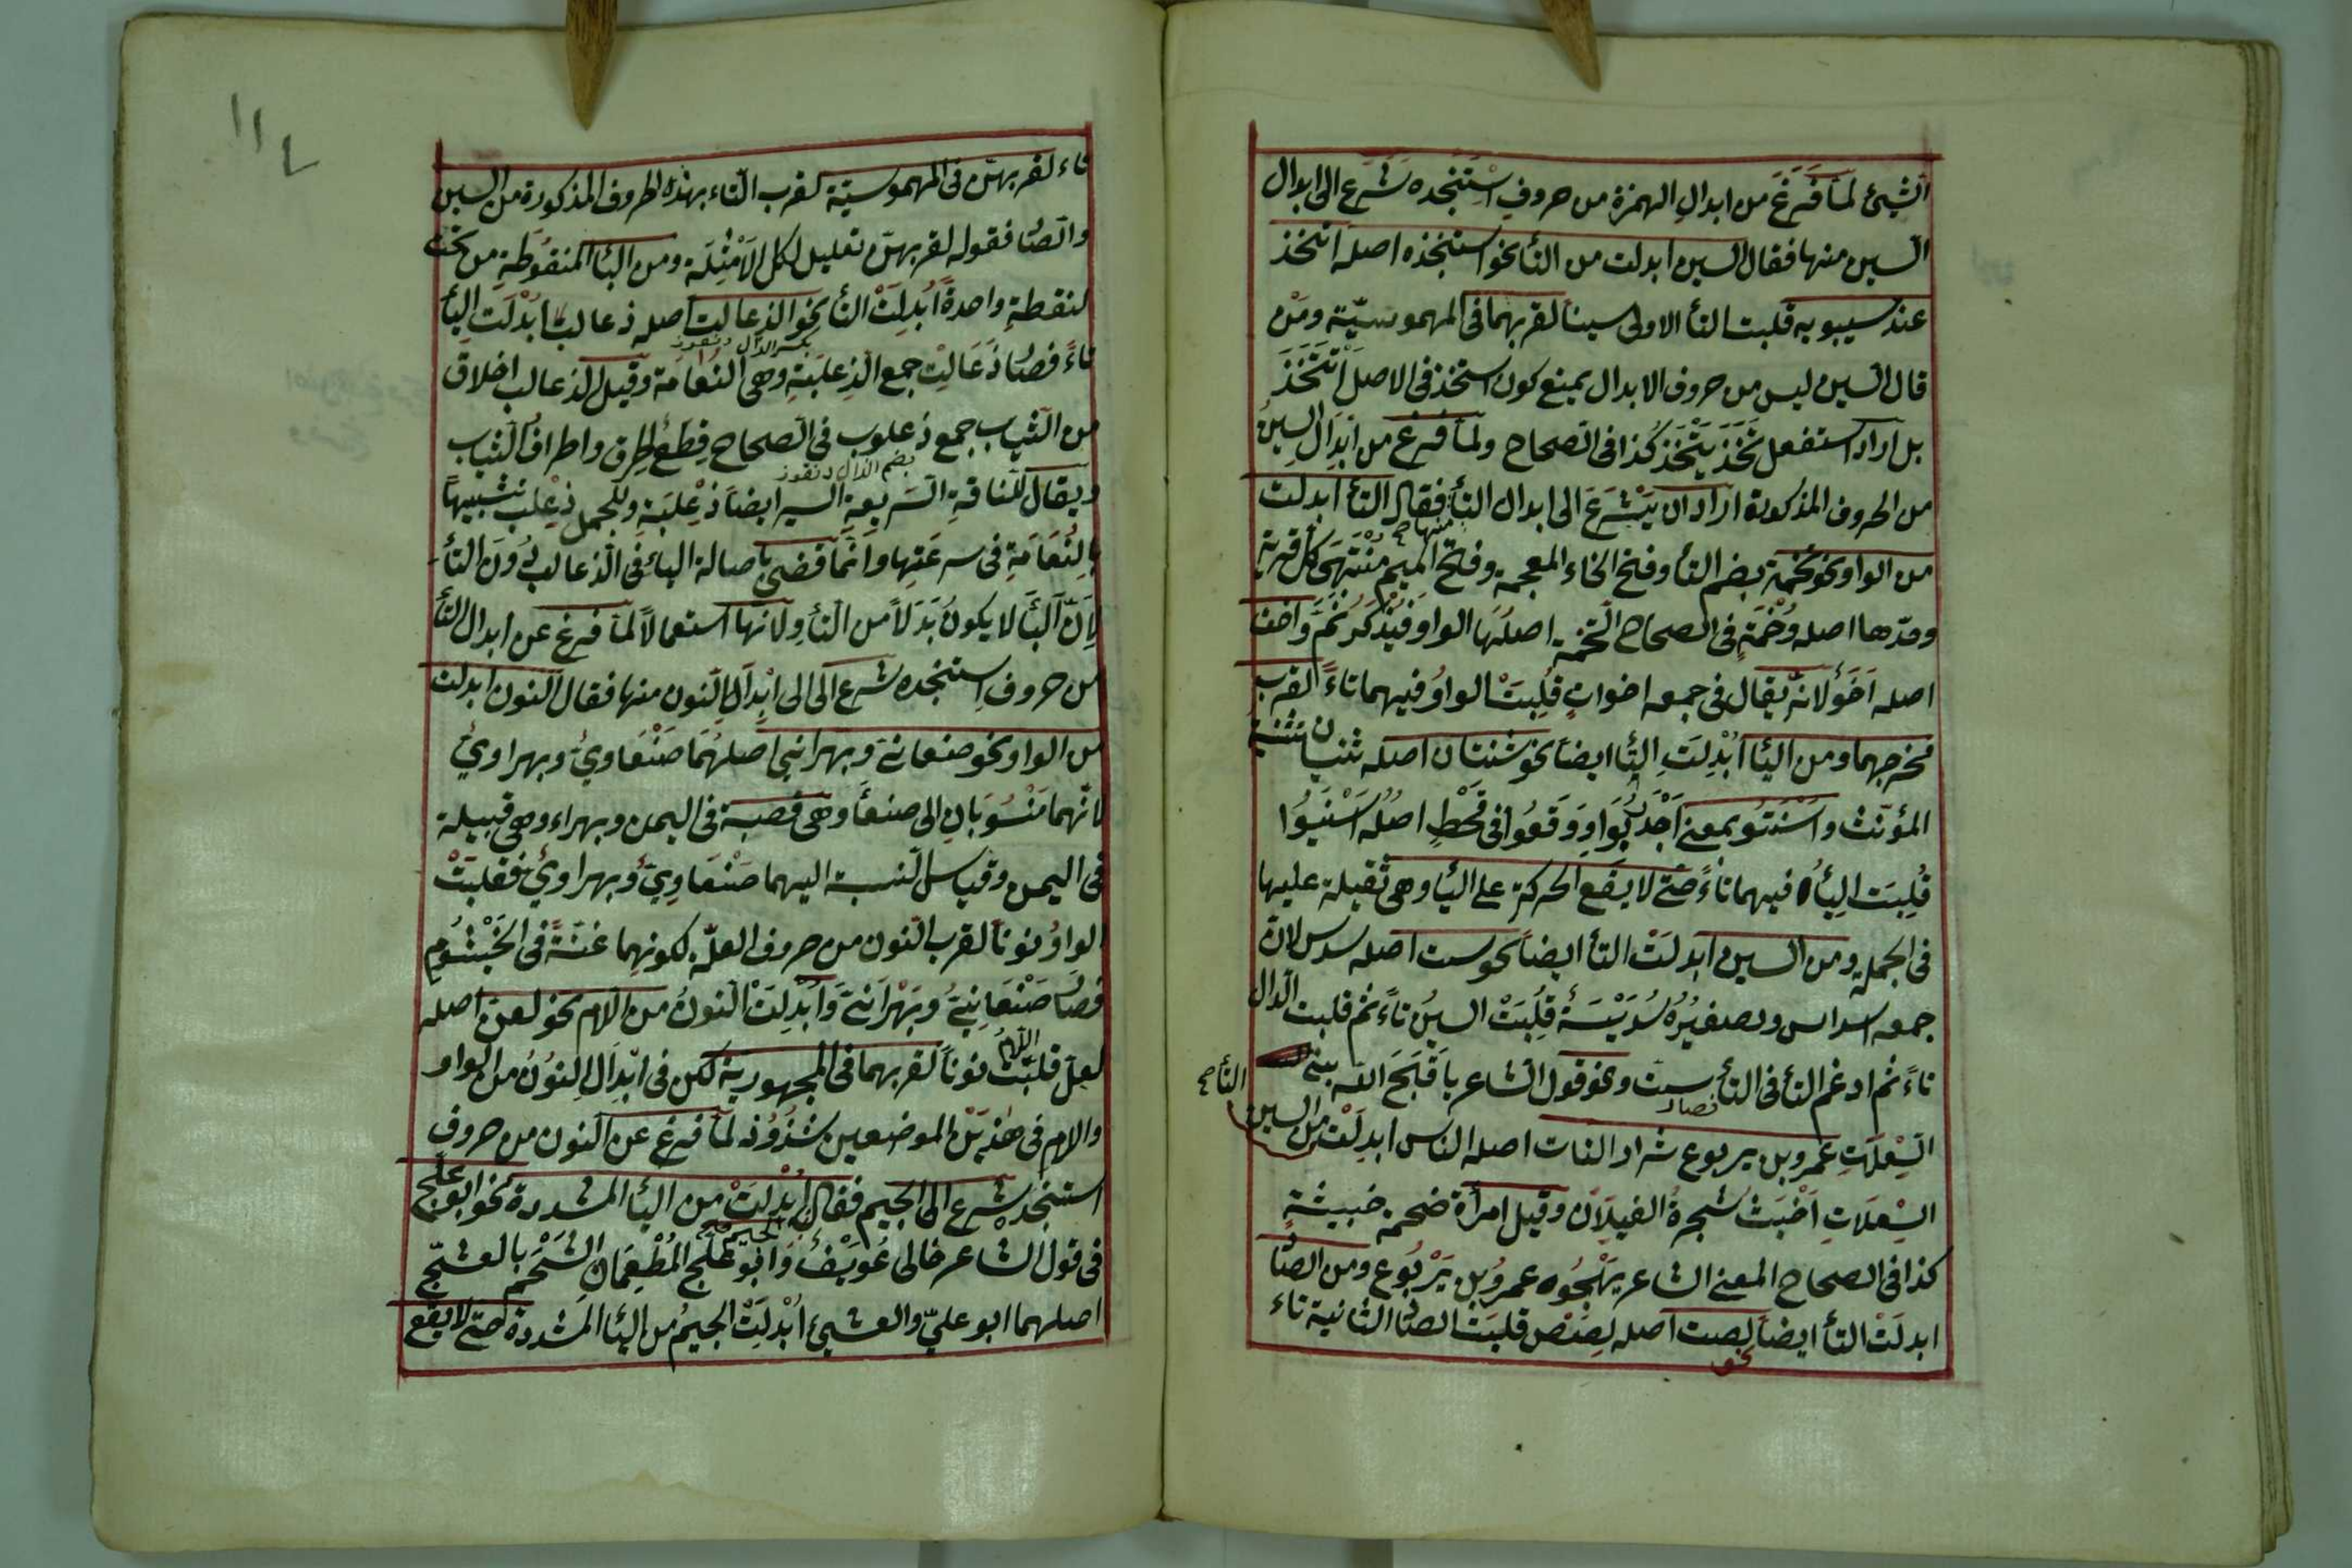 الشيئ لما فرغ من ابدال الهمزة من حروف استنجده شرع الى ابدال
السين منها فقال السين ابدلت من التأ نحو استخذ اصله اتخذ
عند سيبويه قلبت التأ الاولى سينا لقربهما فى المهموسيّة ومن
قال السين ليس من حروف الابدال يمنع كون استخذ فى الاصل اتتخذ
بل اراد استفعل تخذ يتخذ كذا فى الصحاح ولما فرغ من ابدال السين
من الحروف المذكورة اراد ان يشرع الى ابدال التأ فقال التأ ابدلت
من الواو نحو تخمة بضم التأ وفتح الخاء المعجمة وفتح الميم منتهى كل قرية
وحدّها اصله وخمة فى الصحاح التخمة اصلها الواو فيذكر ثم واخت
اصله اخو لانه يقال فى جمعه اخوات قلبت الواو فيهما تاء لقرب
مخرجهما ومن اليأ ابدلت التأ ايضا نحو ثنتان اصله ثنيان تثنية
المؤنث واسنتو بمعنى اجدبوا ووقعوا فى قحط اصله اسنيوا
قلبت اليأ فيهما تاء حتى لا يقع الحركة على اليأ وهى ثقيلة عليها
فى الجملة ومن السين ابدلت التأ ايضا نحو ست اصله سدس لان
جمعه اسداس وتصغيره سديسة قلبت السين تاء ثم قلبت الدال
تاء ثم ادغم التأ فى التأ فصار ست ونحو قول الشاعر يا قبح الله بنى
السعلات عمرو بن يربوع شرار النات اصله الناس ابدلت التأ من السين
السعلات اخبث شجرة الغيلان وقيل امرأة ضخمة خبيثة
كذا فى الصحاح المعنى الشاعر يهجوه عمرو بن يربوع ومن الصا
ابدلت التأ ايضا نحو لصت اصله لصص قلبت الصا الثانية تاء
١١٤
تاء لقربهن فى المهموسيّة كقرب التاء بهذه الحروف المذكورة من السين
والصا فقوله لقربهن تعليل لكل الامثلة ومن البأ المنقوطة من تحت
لنقطة واحدة ابدلت التأ نحو الذعالت اصله ذعالب ابدلت البأ
تاء فصا ذعالت جمع الذعلبة وهى النعامة وقيل الذعالب اخلاق
من الثياب جمع ذعلوب فى الصحاح قطع الخرق واطراف الثياب
ويقال للناقة السريعة السير ايضا ذعلبة وللجمل ذعلب تشبيها
بالنعامة فى سرعتها وانما قضى باصالة البأ فى الذعالب دون التأ
لان البأ لا يكون بدلا من التأ ولانها استعمالا لما فرغ عن ابدال التأ
من حروف استنجده شرع الى الى ابدال النون منها فقال النون ابدلت
من الواو نحو صنعانى وبهرانى اصلهما صنعاوى وبهراوى
لانهما منسوبان الى صنعأ وهى قصبة فى اليمن وبهراء وهى قبيلة
فى اليمن وقياس النسبة اليهما صنعاوى وبهراوى فقلبت
الواو نونا لقرب النون من حروف العلّة لكونهما غنّة فى الخيشوم
فصا صنعانى وبهرانى وابدلت النون من اللام نحو لعن اصله
لعل قلبت اللام نونا لقربهما فى المجهورية لكن فى ابدال النون من الواو
والام فى هذين الموضعين شذوذ لما فرغ عن النون من حروف
استنجد شرع الى الجيم فقال ابدلت من اليأ المشددة نحو ابو علج
فى قول الشاعر خالى عويف وابو علج المطعمان الشحم بالعشج
اصلهما ابو على والعشى ابدلت الجيم من اليأ المشددة حتى لا يقع